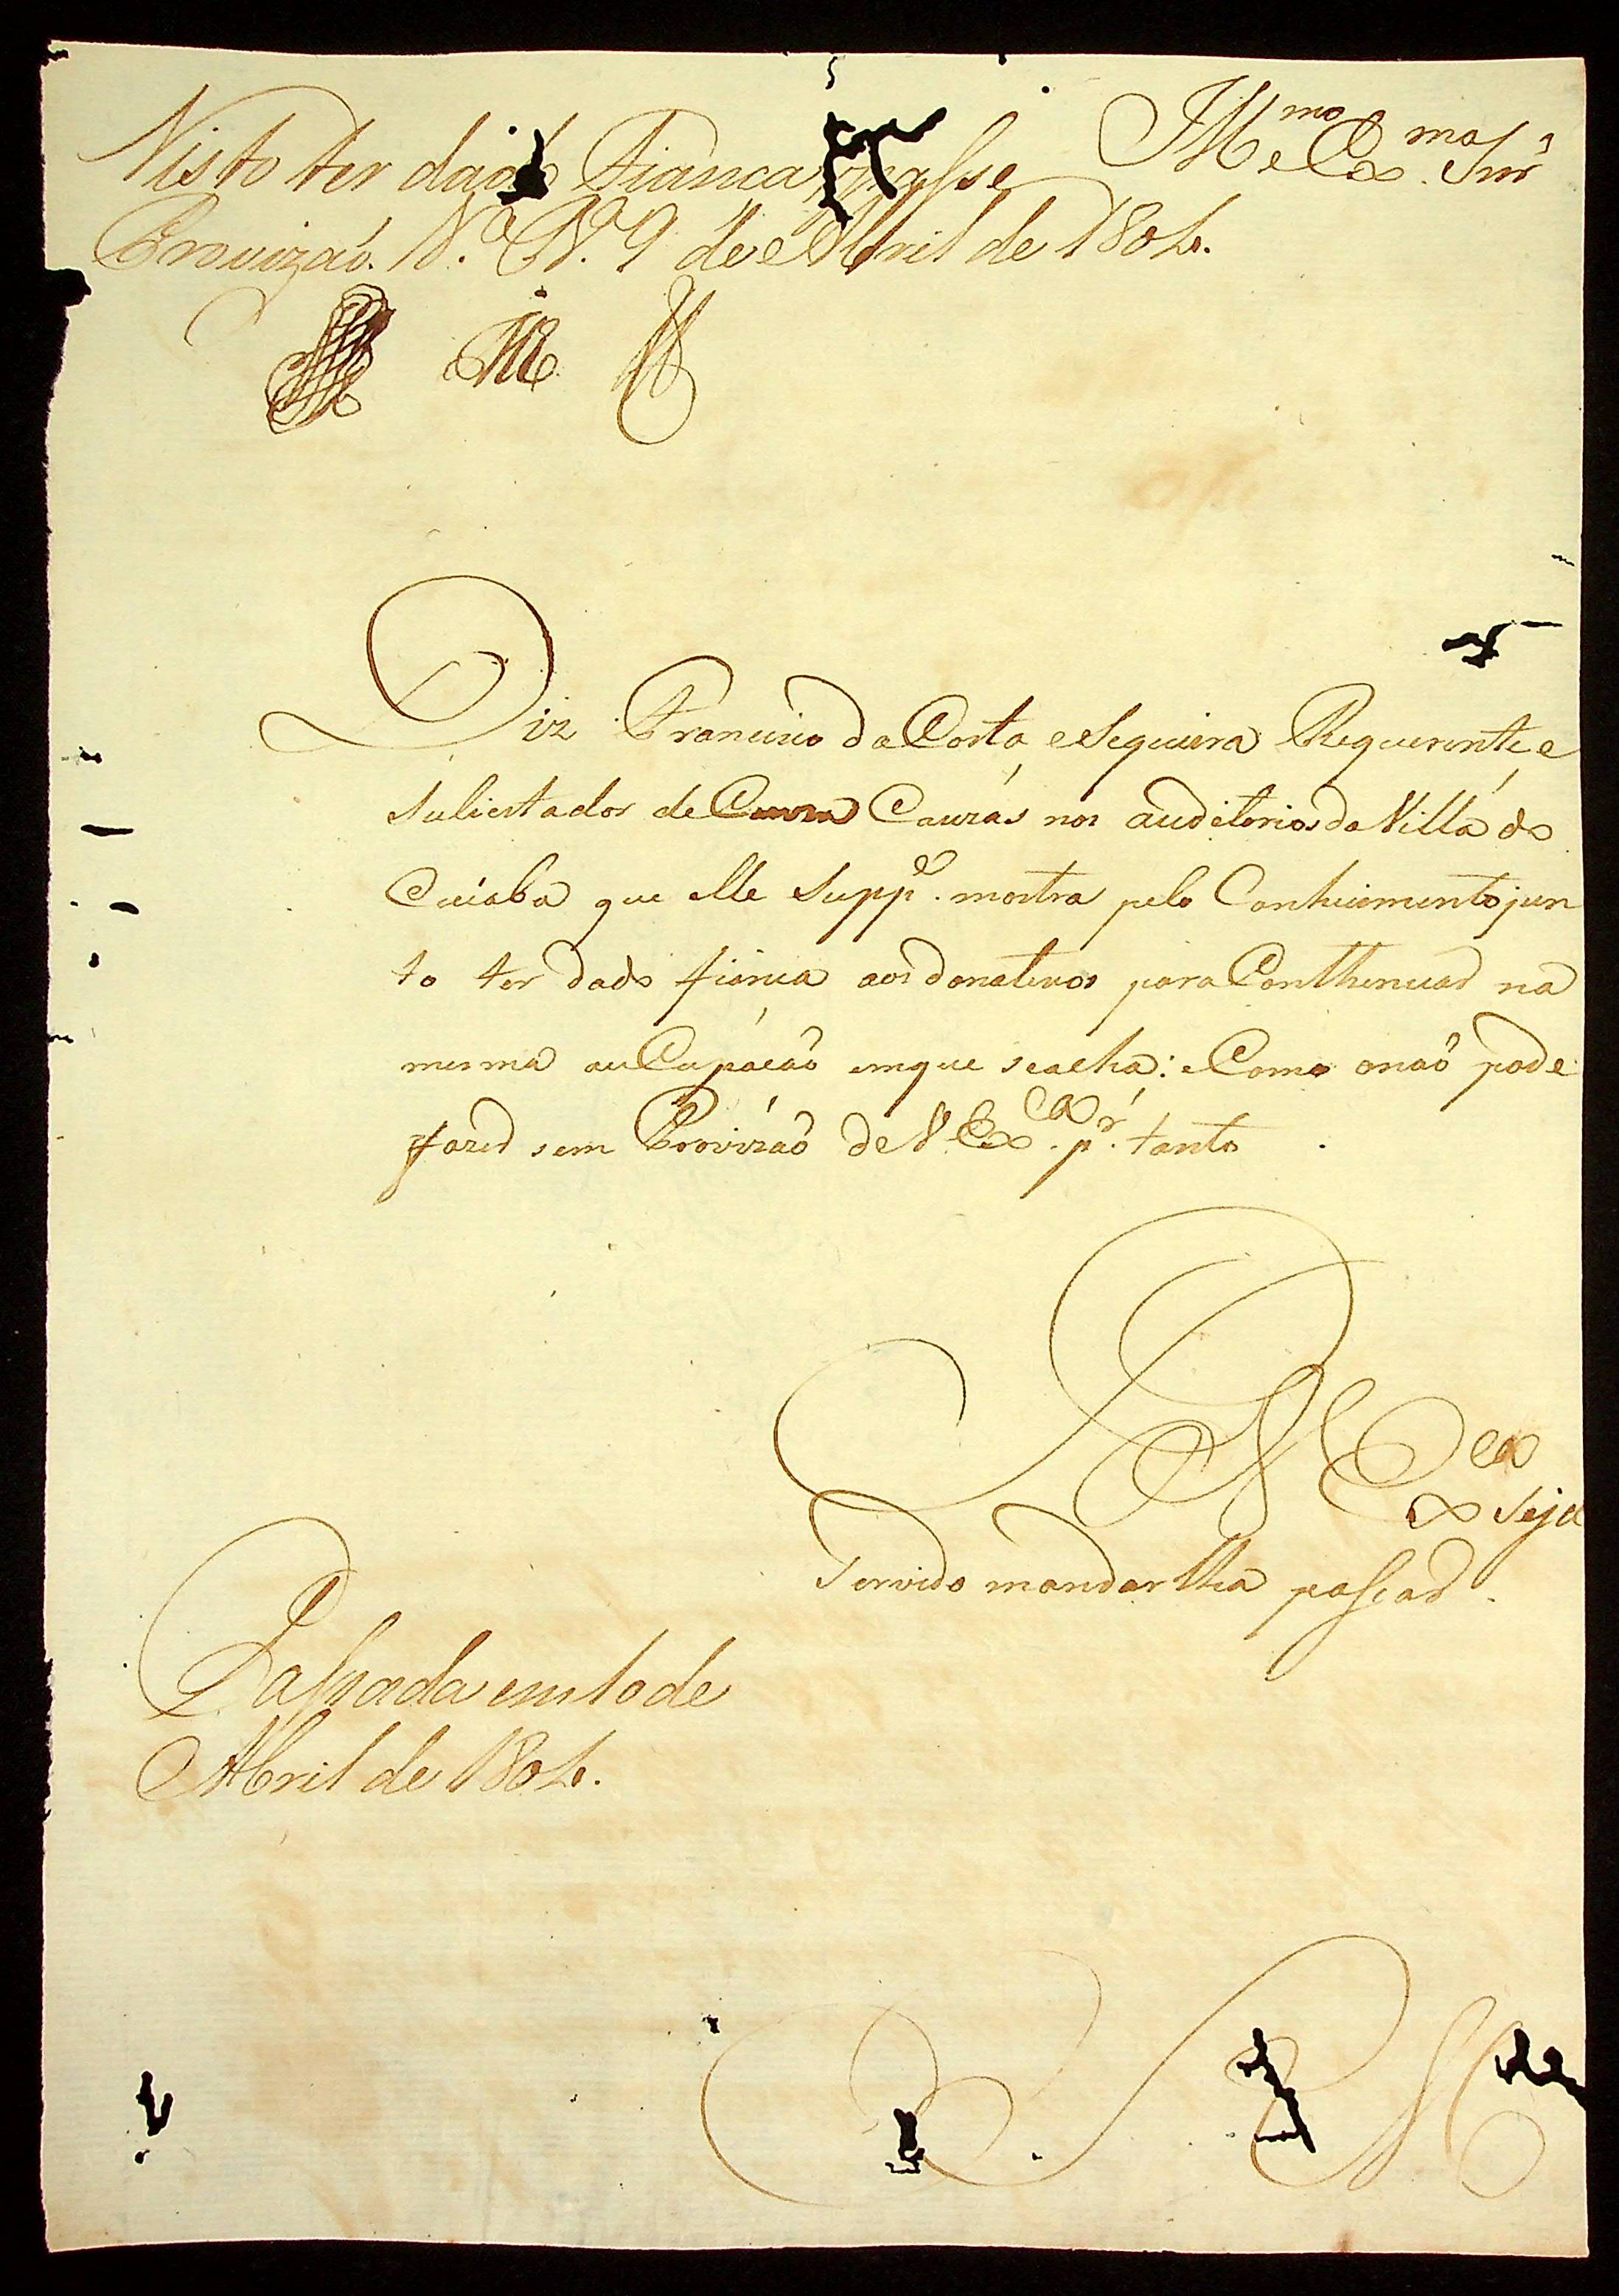 Visto ter dado Fianca, passe
Provizaõ. V.ª B.ª 9 de Abril de 1804.
Ill.mo e Ex.mo Snr̃
Diz Francisco da Costa, e Sequeira Requerente, e
Sulicitador de Cauzas nos auditorios da Villa do
Cuiaba que elle Supp.e mostra pelo Conhecimento jun
to ter dado fianca aos donativos para Conthenuar na
mesma au Cupacaõ emque seacha: e Como onaõ pode
fazer sem Provizaõ de V. Ex.ca p.r tanto
P. a V. Ex.ca seja
Servido mandar lha passar.
Passada em 10 de
Abril de 1804.
E R M